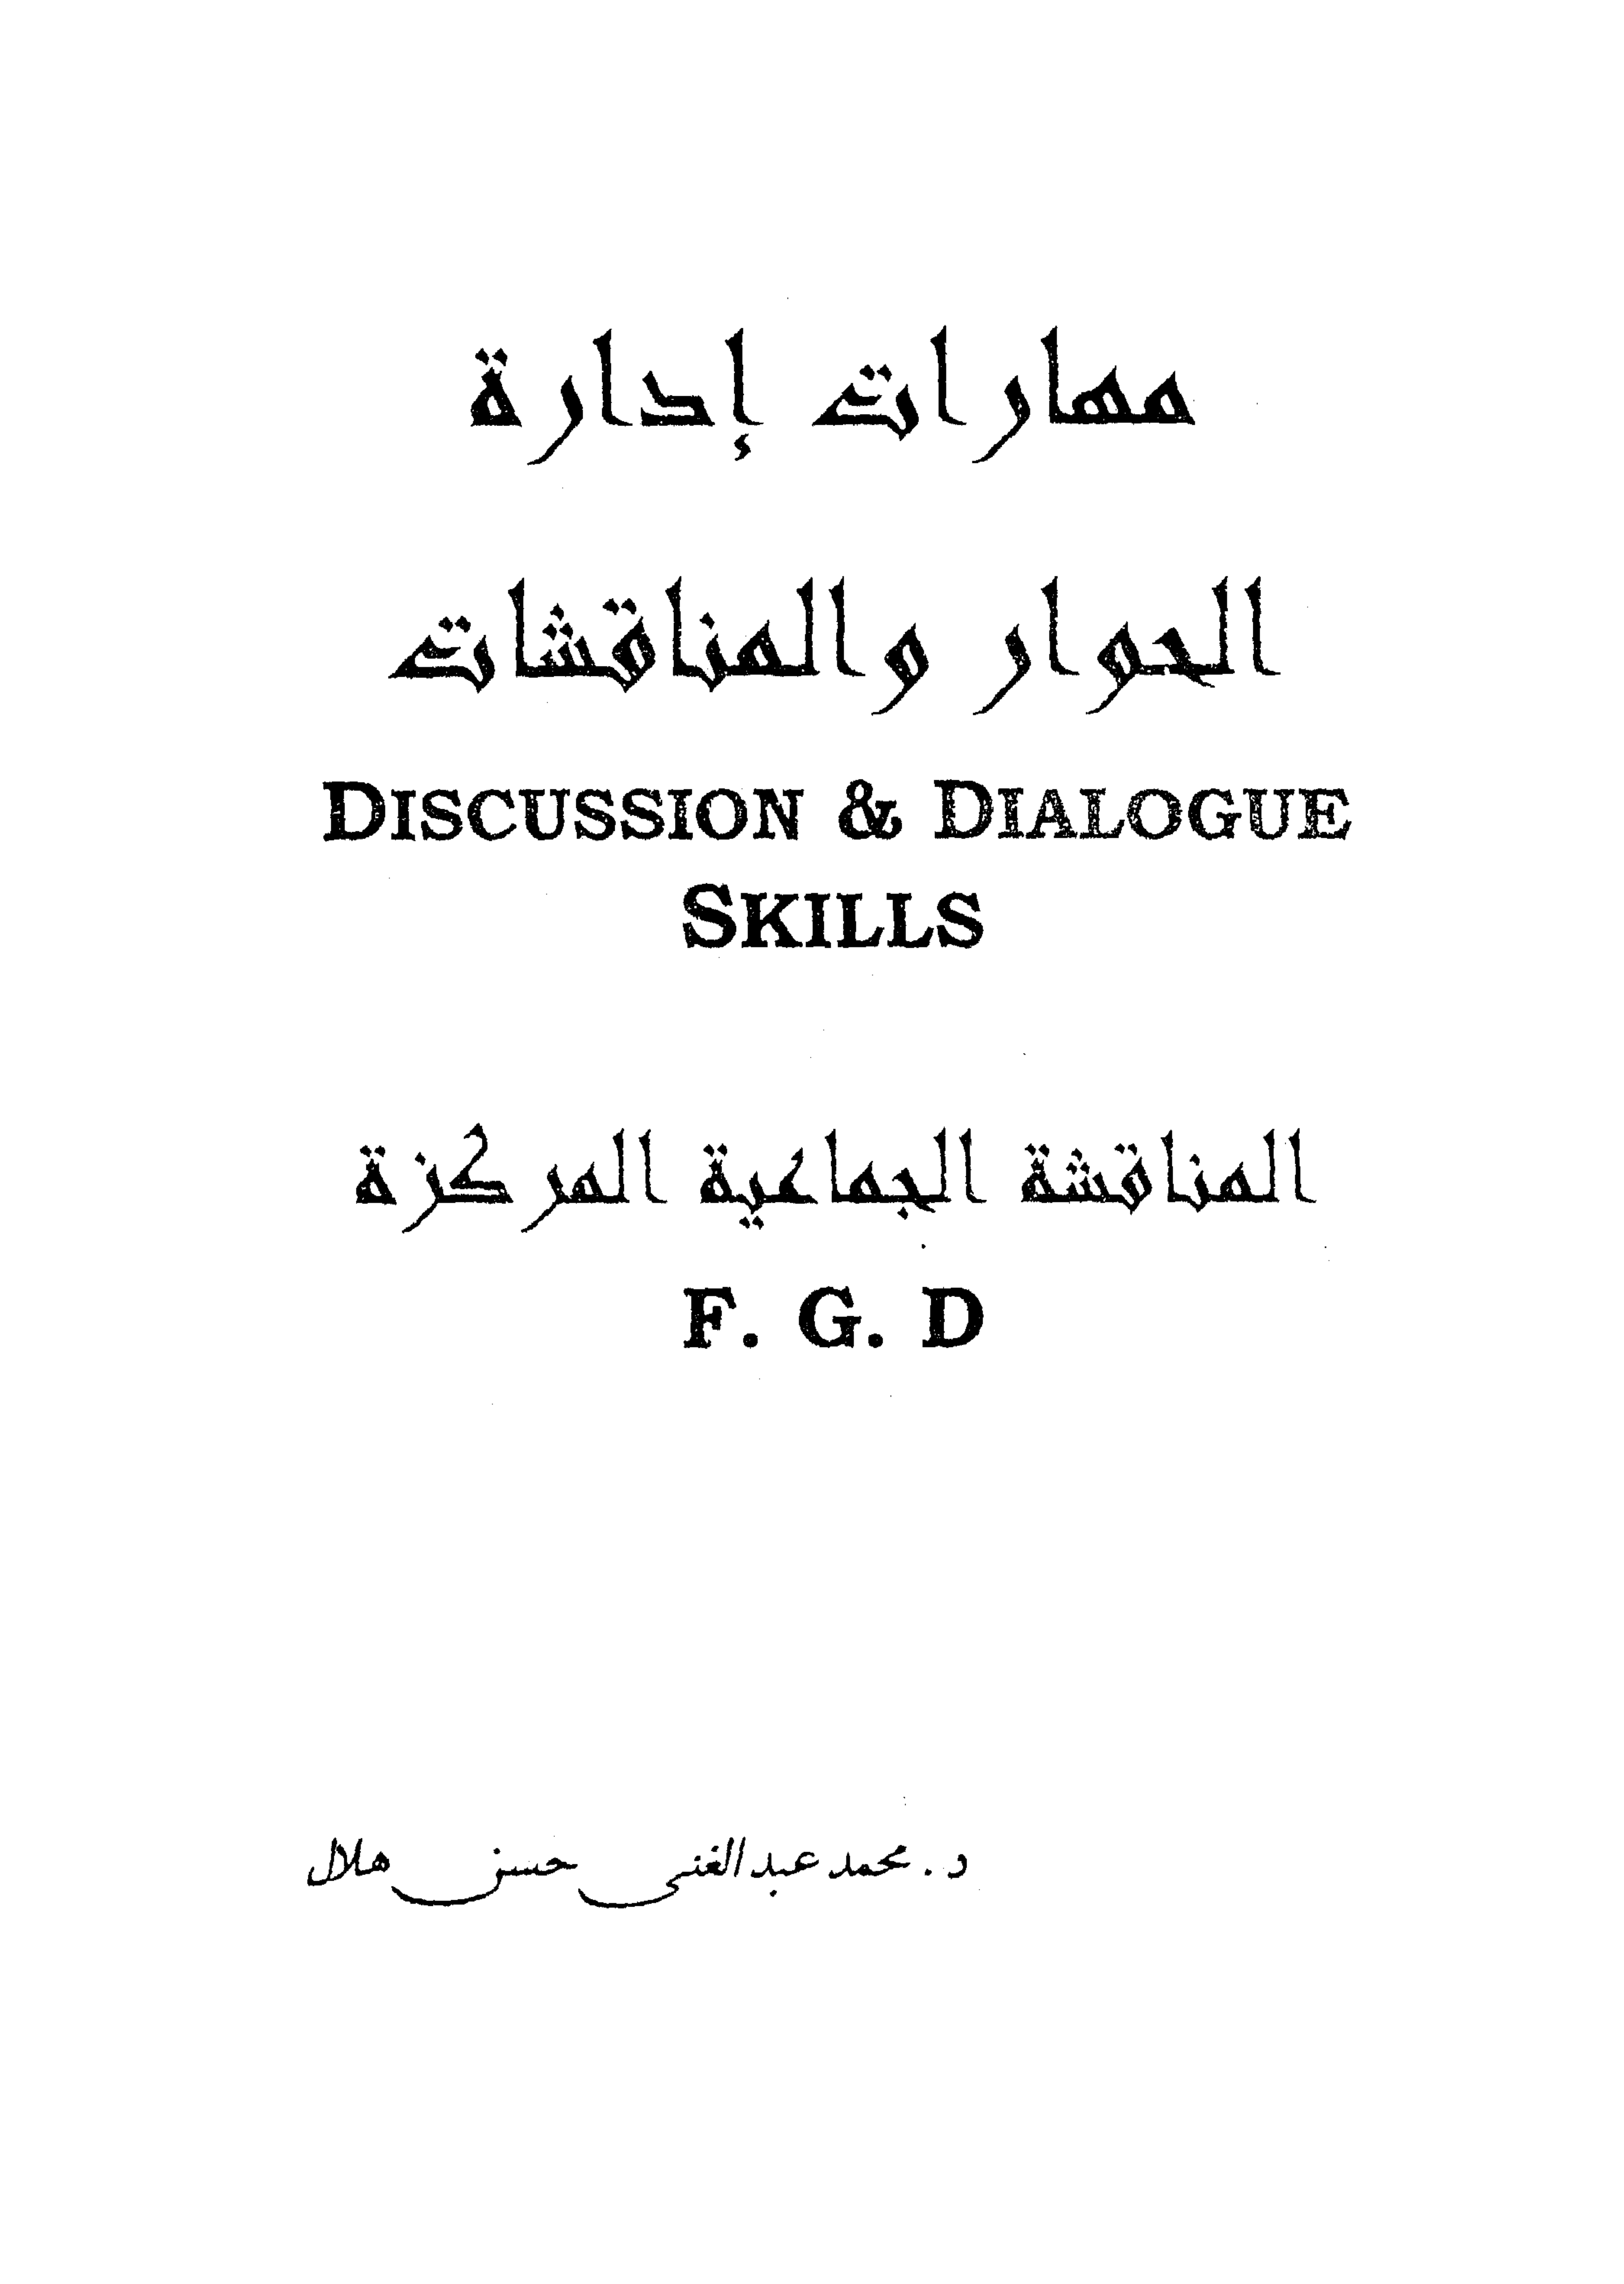 مهارات إدارة
الحوار والمناقشات
DISCUSSION & DIALOGUE
SKILLS
المناقشة الجماعية المركزة
F. G. D
د. محمد عبد الغنى حسن هلال